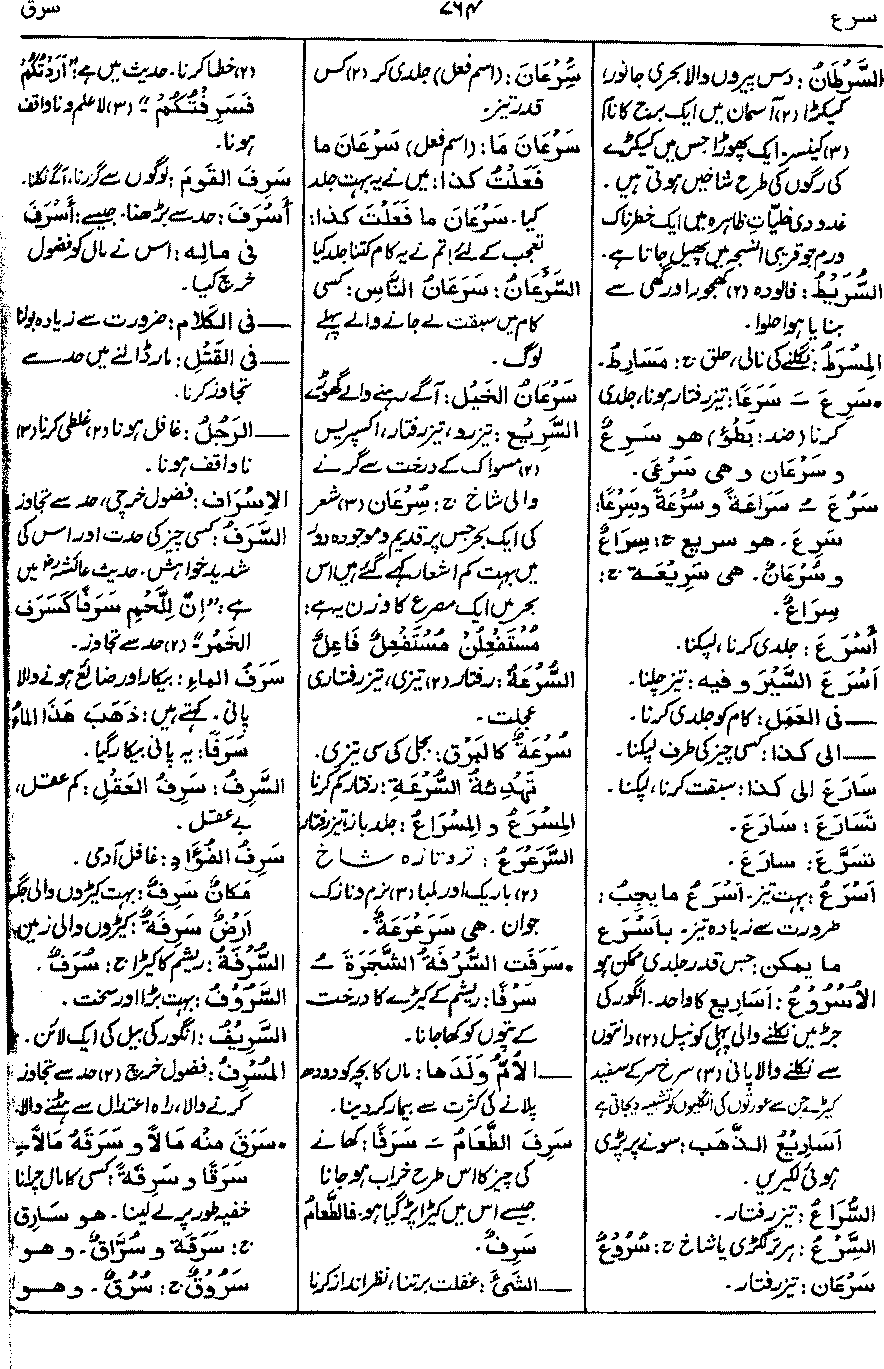 سرع
۷۶۴
سرق
السَّرَطَانُ: دس پیروں والا بحری جانور،
کیکڑا (۲) آسمان میں ایک برج کا نام
(۳) کینسر۔ ایک پھوڑا جس میں کیکڑے
کی رگوں کی طرح شاخیں ہوتی ہیں۔
غدودی خلیاتِ ظاہرہ میں ایک خطرناک
ورم جو قریبی انسجہ میں پھیل جاتا ہے۔
السُّرَيْطُ: فالودہ (۲) کھجور اور گھی سے
بنایا ہوا حلوا۔
المِسْرَطُ: نگلنے کی نالی، حلق ج: مَسَارِطُ۔
•سَرِعَ ــَـ سَرَعًا: تیز رفتار ہونا، جلدی
کرنا (ضد: بَطُؤَ) هو سَرِعٌ
و سَرْعَان و هی سَرْعَی۔
سَرُعَ ــُـ سَرَاعَةً و سُرْعَةً وسَرَعًا:
سَرِعَ۔ هو سریع ج: سِرَاعٌ
و سُرْعَانٌ۔ هی سَرِيْعَة ج:
سِرَاعٌ۔
أَسْرَعَ: جلدی کرنا، لپکنا۔
أَسْرَعَ السَّيْرَ و فیه: تیز چلنا۔
ـــ فی العَمَل: کام کو جلدی کرنا۔
ـــ الی کذا: کسی چیز کی طرف لپکنا۔
سَارَعَ الی کذا: سبقت کرنا، لپکنا۔
تَسَارَعَ: سَارَعَ۔
تَسَرَّعَ: سارَعَ۔
أَسْرَعُ: بہت تیز۔ أَسْرَعُ ما یجبُ:
ضرورت سے زیادہ تیز۔ بأَسْرَع
ما یمکن: جس قدر جلدی ممکن ہو
الأُسْرُوْعُ: أَسَارِيع کا واحد۔ انگور کی
جڑ میں نکلنے والی پہلی کونپل (۲) دانتوں
سے نکلنے والا پانی (۳) سرخ سر کے سفید
کیڑے جن سے عورتوں کی انگلیوں کو تشبیہ دیجاتی ہے
أَسَارِيْعُ الذَّهَب: سونے پر پڑی
ہوئی لکیریں۔
السُّرَاعُ: تیز رفتار۔
السَّرْعُ: ہر تر لکڑی یا شاخ ج: سُرُوْعٌ
سَرْعَان: تیز رفتار۔
سَُرْعَانَ: (اسم فعل) جلدی کر (۲) کس
قدر تیز۔
سَرْعَانَ مَا: (اسم فعل) سَرْعَانَ ما
فَعَلْتُ کذا: میں نے یہ بہت جلد
کیا۔ سَرْعَان ما فَعَلْتَ کذا:
تعجب کے لئے، تم نے یہ کام کتنا جلد کیا
السَّرَعَانُ: سَرَعَانُ النَّاس: کسی
کام میں سبقت لے جانے والے پہلے
لوگ۔
سَرَعَانُ الخَیْل: آگے رہنے والے گھوڑے
السَّرِيْع: تیز رو، تیز رفتار، اکسپریس
(۲) مسواک کے درخت سے گرنے
والی شاخ ج: سُرْعَان (۳) شعر
کی ایک بحر جس پر قدیم و موجودہ دور
میں بہت کم اشعار کہے گئے ہیں اس
بحر میں ایک مصرع کا وزن یہ ہے:
مُسْتَفْعِلُنْ مُسْتَفْعِلُنْ فَاعِلُنْ
السُّرْعَةُ: رفتار (۲) تیزی، تیز رفتاری
عجلت۔
سُرْعَةٌ کالبَرْق: بجلی کی سی تیزی۔
تَهْدِئَةُ السُّرْعَةِ: رفتار کم کرنا
المِسْرَعُ و المِسْرَاعُ: جلد باز، تیز رفتار
السَّرَعْرَعُ: تر و تازہ شاخ
(۲) باریک اور لمبا (۳) نرم و نازک
جوان۔ هی سَرَعْرَعَةٌ۔
•سَرَفَت السُّرْفَةُ الشَّجَرَةَ ــُـ
سَرْفًا: ریشم کے کیڑے کا درخت
کے پتوں کو کھا جانا۔
ـــ الأُمُّ وَلَدَها: ماں کا بچہ کو دودھ
پلانے کی کثرت سے بیمار کر دینا۔
سَرِفَ الطَّعَامُ ــَـ سَرَفًا: کھانے
کی چیز کا اس طرح خراب ہو جانا
جیسے اس میں کیڑا پڑ گیا ہو۔ فالطَّعَامُ
سَرِفٌ۔
ـــ الشَّئَ: غفلت برتنا، نظر انداز کرنا
(۲) خطا کرنا۔ حدیث میں ہے: "أَرَدْتُكُمْ
فَسَرِفْتُكُمْ" (۳) لا علم و نا واقف
ہونا۔
سَرِفَ القَومَ: لوگوں سے گزرنا، آگے نکلنا۔
أَسْرَفَ: حد سے بڑھنا۔ جیسے: أَسْرَفَ
فی مالِه: اس نے مال کو فضول
خرچ کیا۔
ـــ فی الکَلَام: ضرورت سے زیادہ بولنا
ـــ فی القَتْل: مار ڈالنے میں حد سے
تجاوز کرنا۔
ـــ الرَّجُلُ: غافل ہونا (۲) غلطی کرنا (۳)
نا واقف ہونا۔
الإسْرَاف: فضول خرچی، حد سے تجاوز
السَّرَفُ: کسی چیز کی حدت اور اس کی
شدید خواہش۔ حدیث عائشہؓ میں
ہے: "إنَّ لِلَّحْمِ سَرَفًا کَسَرَف
الخَمْر" (۲) حد سے تجاوز۔
سَرَفُ الماء: بیکار اور ضائع ہونے والا
پانی۔ کہتے ہیں: ذَهَبَ هَذَا الماءُ
سَرَفًا: یہ پانی بیکار گیا۔
السَّرِفُ: سَرِفُ العَقْل: کم عقل،
بے عقل۔
سَرِفُ الفُؤَادِ: غافل آدمی۔
مَکَانٌ سَرِفٌ: بہت کیڑوں والی جگہ
أَرْضٌ سَرِفَةٌ: کیڑوں والی زمین
السُّرْفَةُ: ریشم کا کیڑا ج: سُرَفٌ۔
السَّرُوْفُ: بہت بڑا اور سخت۔
السَّرِيْفُ: انگور کی بیل کی ایک لائن۔
المُسْرِفُ: فضول خرچ (۲) حد سے تجاوز
کرنے والا، راہ اعتدال سے ہٹنے والا۔
•سَرَقَ مِنْه مَالًا و سَرَقَهُ مَالًا ــِـ
سَرَقًا و سَرِقَةً: کسی کا مال چرانا
خفیہ طور پر لے لینا۔ هو سَارِق
ج: سَرَقَة و سُرَّاقٌ۔ و هو
سَرُوْقٌ ج: سُرُقٌ۔ و هو